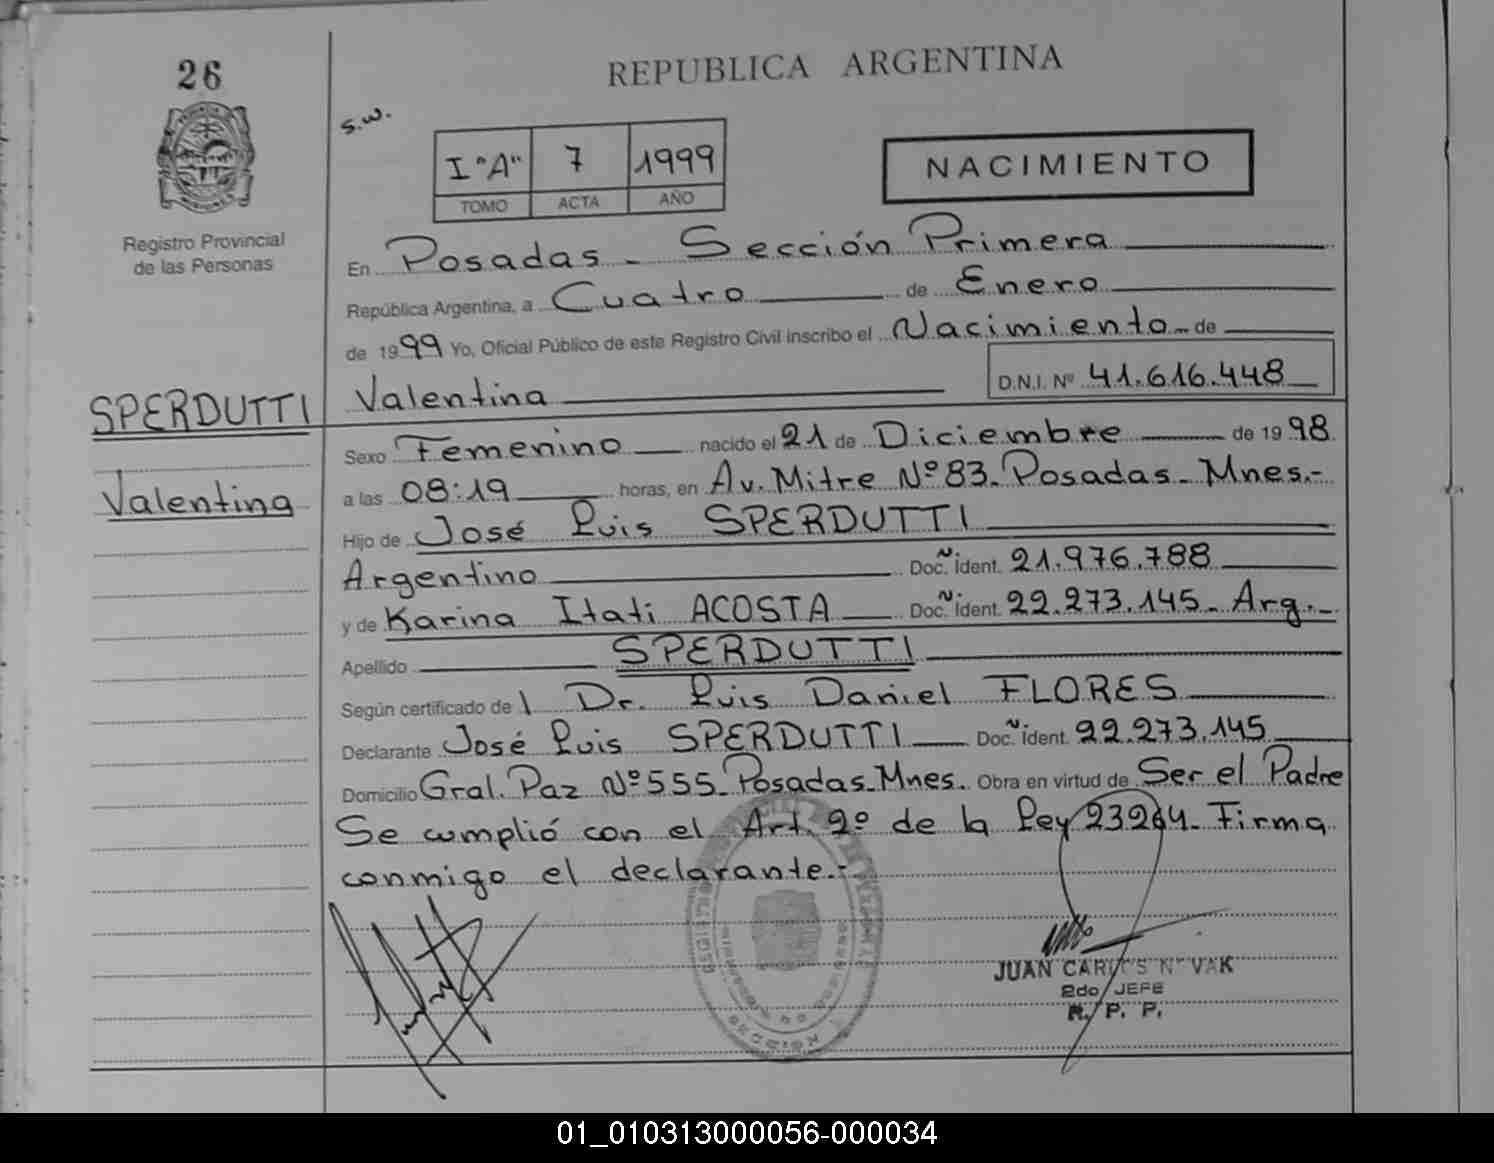 26
REPUBLICA ARGENTINA
s.w.
I "A" 7 1999
TOMO ACTA AÑO
NACIMIENTO
Registro Provincial
de las Personas
En Posadas - Sección Primera
República Argentina, a Cuatro de Enero
de 1999 Yo, Oficial Público de este Registro Civil inscribo el Nacimiento - de
SPERDUTTI
Valentina D.N.I. Nº 41.616.448
Sexo Femenino nacido el 21 de Diciembre de 19 98
Valentina
a las 08:19 horas, en Av. Mitre Nº 83. Posadas - Mnes.-
Hijo de José Luis SPERDUTTI
Argentino Doc. Ñ Ident. 21.976.788
y de Karina Itati ACOSTA Doc. Ñ Ident. 22.273.145 - Arg. -
Apellido SPERDUTTI
Según certificado del Dr. Luis Daniel FLORES
Declarante José Luis SPERDUTTI Doc. Ñ Ident. 22.273.145
Domicilio Gral. Paz Nº 555 - Posadas - Mnes. Obra en virtud de Ser el Padre
Se cumplió con el Art. 2º de la Ley 23264 - Firma
conmigo el declarante.-
JUAN CARLOS NOVAK
2do JEFE
R. P. P.
01_010313000056-000034